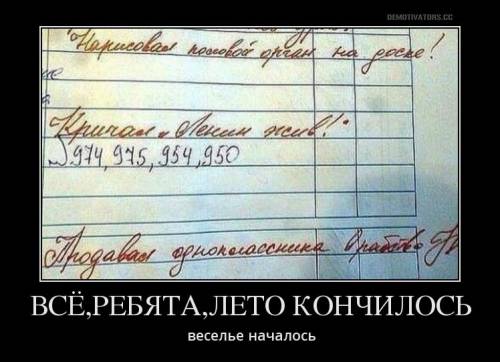 DEMOTIVATORS.CC
"Нарисовал половой орган на доске!
Кричал "Ленин жив!"
974, 975, 954, 950
Продавал одноклассника в рабство
ВСЁ,РЕБЯТА,ЛЕТО КОНЧИЛОСЬ
веселье началось